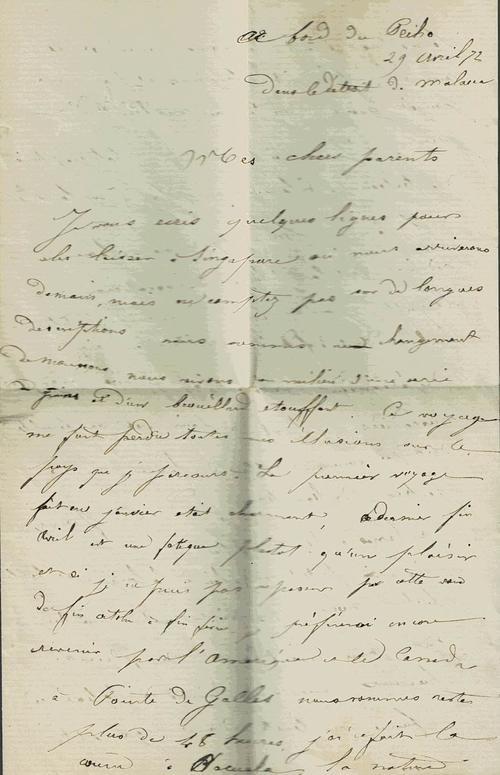 a bord du Peiho
29 avril 72
Dans le détroit de Malacca
Mes chers parents
Je vous ecris quelques lignes pour
les laisser a Singapore ou nous arriverons
demain, mais ne comptez pas sur de longues
descriptions nous sommes changement
de mousson, nous vivons au milieu d'une serie
de grains et d'un brouillard etouffant. Ce voyage
me fait perdre toutes mes illusions sur le
pays que je parcours. Le premier voyage
fait en janvier etait charmant, ce dernier fin
avril est une fatigue plutot qu'un plaisir
et si je ne puis pas passer par cette voie
de fin octobre a fin je préfèrerai encore
revenir par l'Amerique et le Canada
à Pointe de Galles nous sommes restés
plus de 48 heures, j'ai fait la
course à la nature